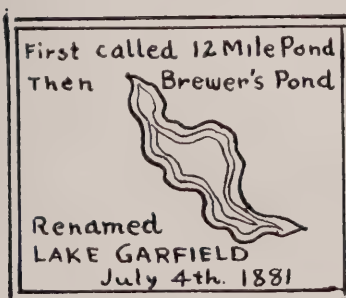 First called 12 Mile Pond
Then Brewer's Pond
Renamed
LAKE GARFIELD
July 4th. 1881